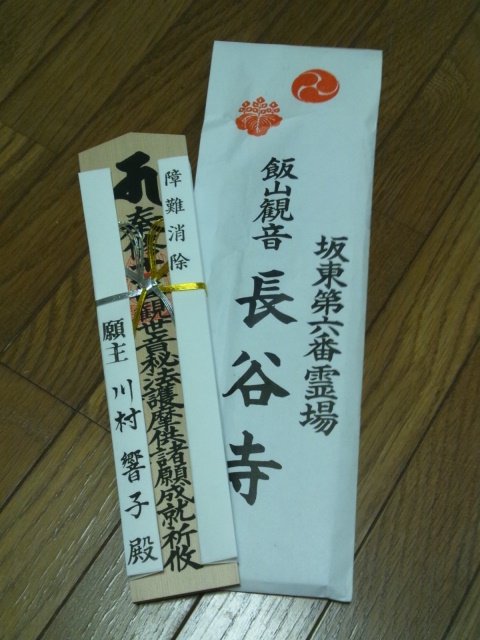 坂東第六番霊場
飯山観音
長谷寺
障難消除
奉修
観世音秘法護摩供諸願成就祈攸
願主 川村 響子 殿